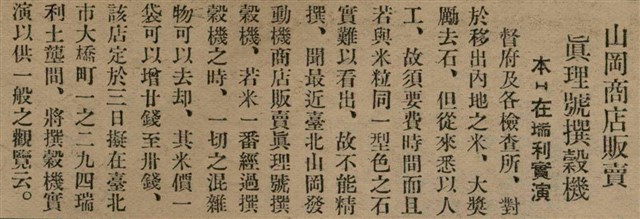 山岡商店販賣
眞理號撰穀機
本日在瑞利實演
督府及各檢查所、對
於移出內地之米、大奬
勵去石、但從來悉以人
工、故須要費時間而且
若與米粒同一型色之石
實難以看出、故不能精
撰、聞最近臺北山岡發
動機商店販賣眞理號撰
穀機、若米一番經過撰
穀機之時、一切之混雜
物可以去却、其米價一
袋可以增廿錢至卅錢、
該店定於三日擬在臺北
市大橋町一之二九四瑞
利土壟間、將撰穀機實
演以供一般之觀覽云。